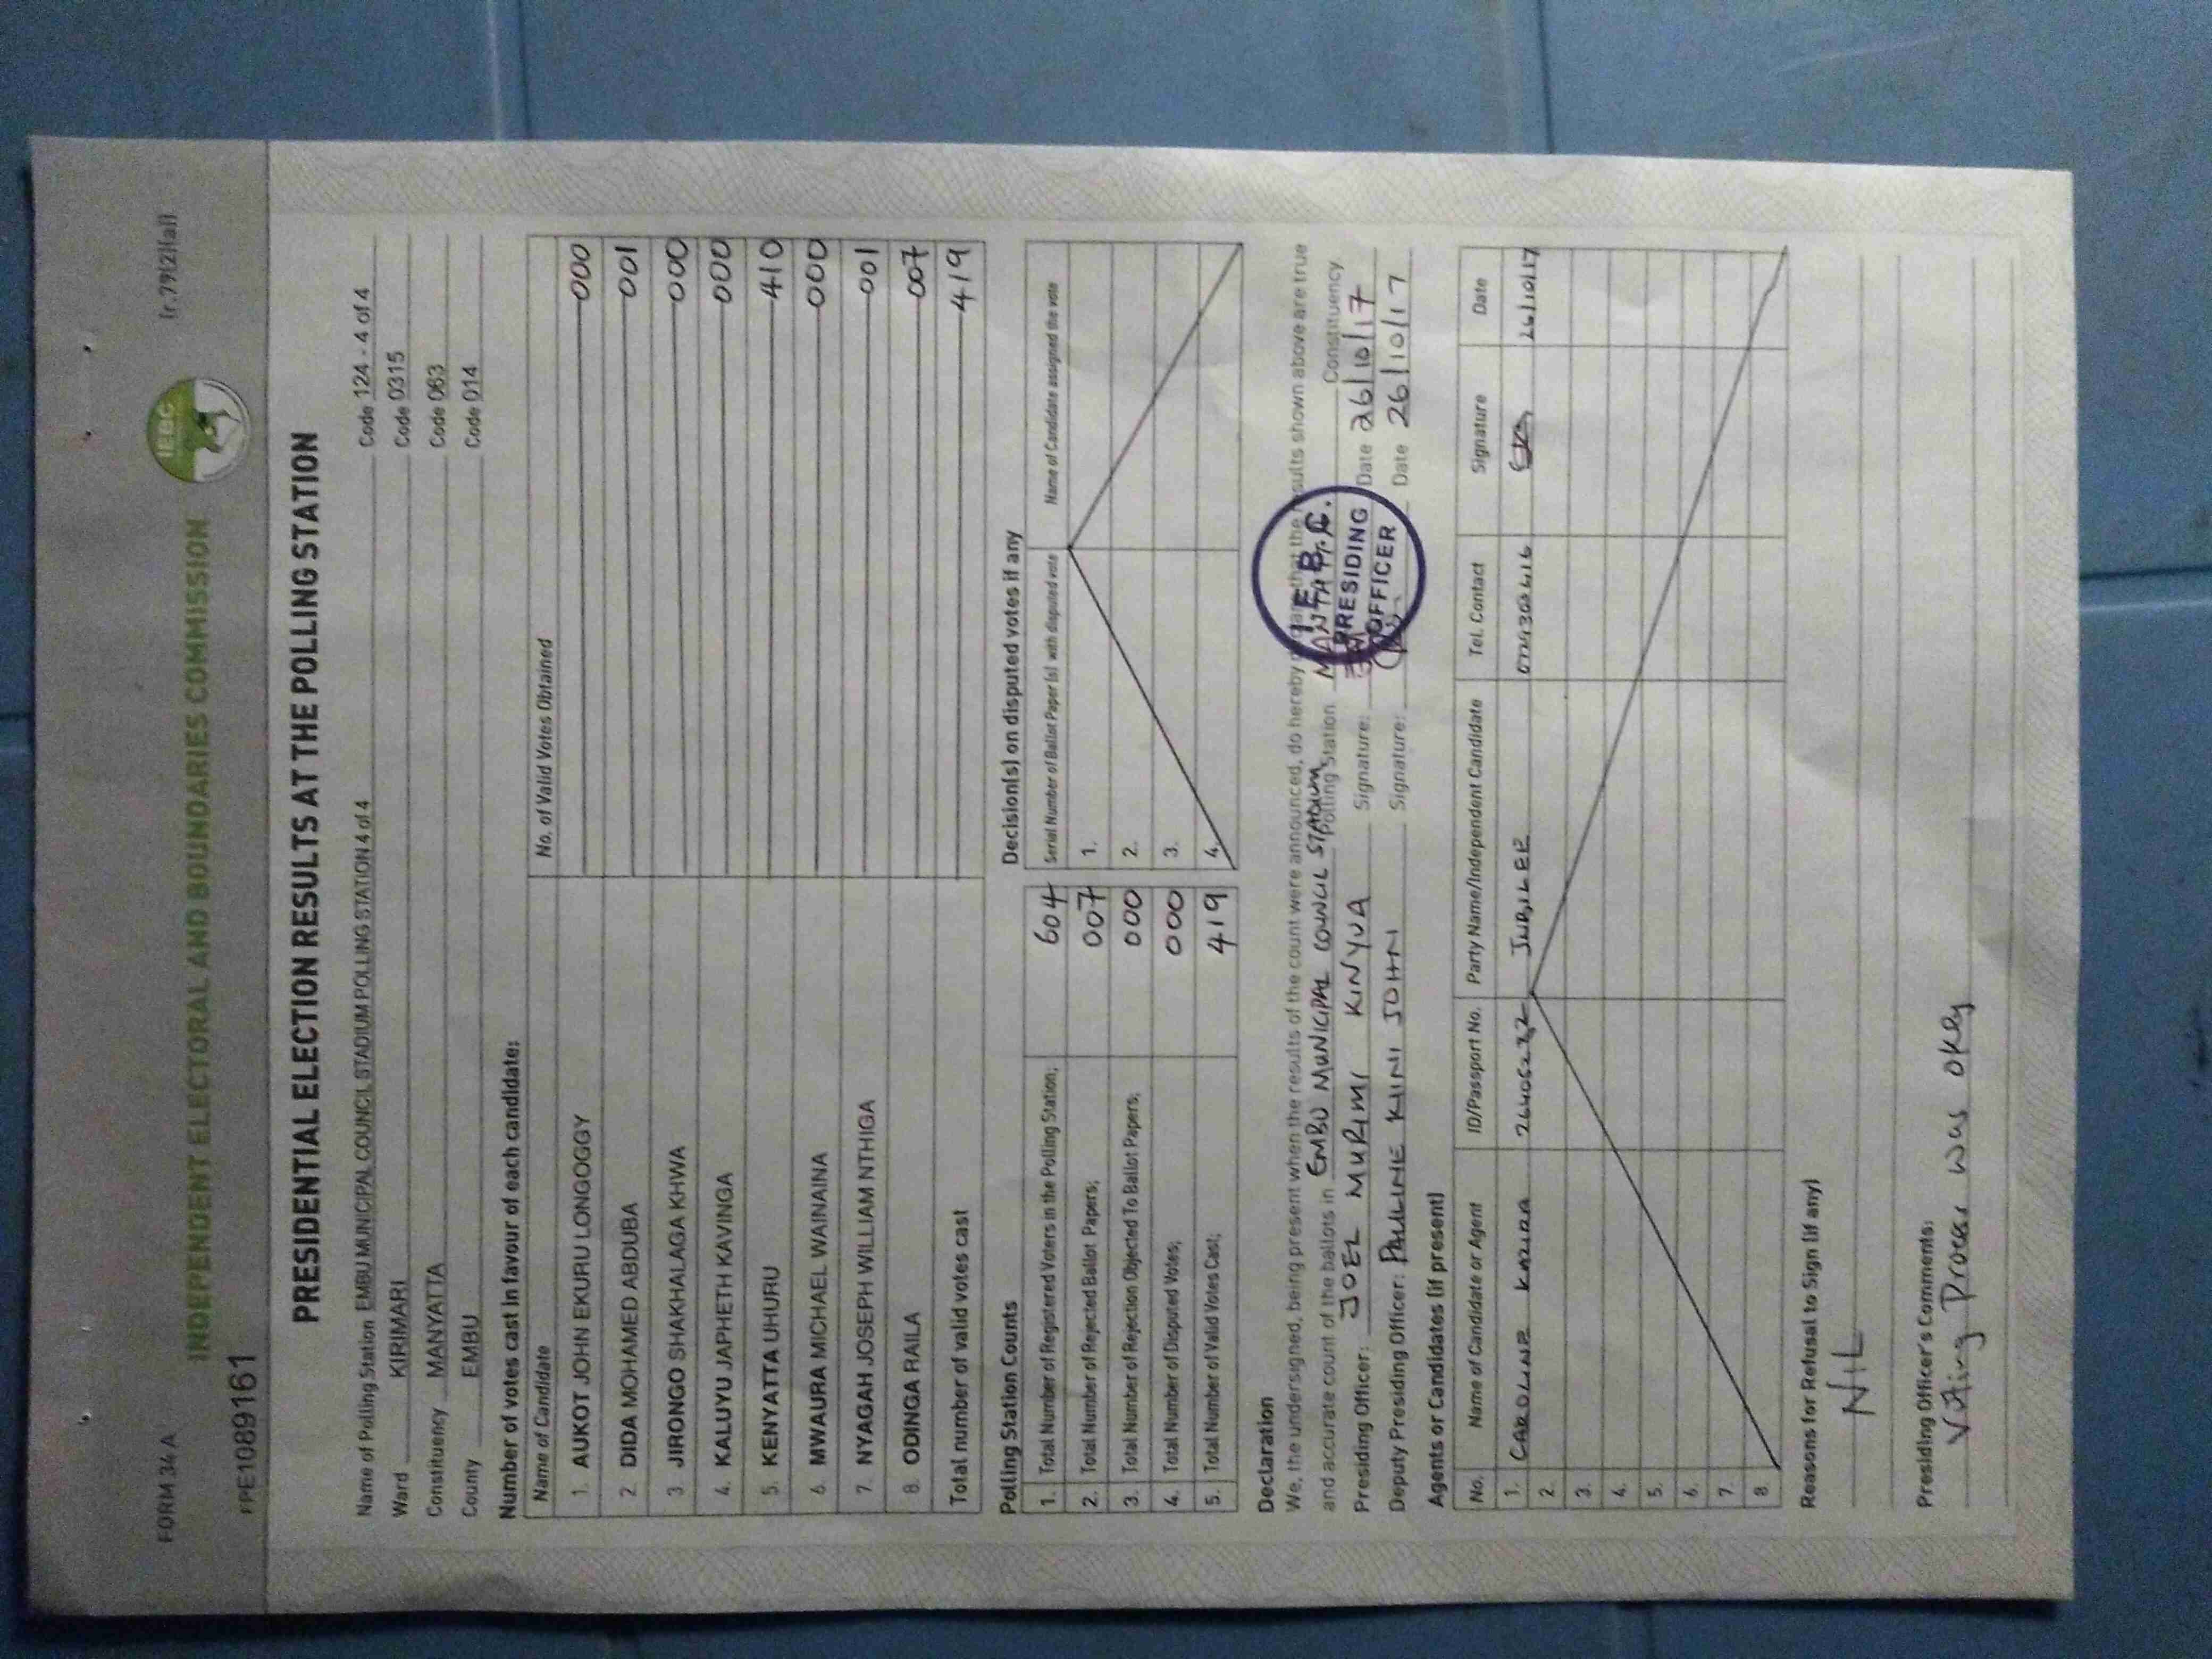 FORM 34 A
(r.79(2)(a))
INDEPENDENT ELECTORAL AND BOUNDARIES COMMISSION
IEBC
FPE1089161
PRESIDENTIAL ELECTION RESULTS AT THE POLLING STATION
Name of Polling Station EMBU MUNICIPAL COUNCIL STADIUM POLLING STATION 4 of 4 Code 124 - 4 of 4
Ward KIRIMARI Code 0315
Constituency MANYATTA Code 063
County EMBU Code 014
Number of votes cast in favour of each candidate:
Name of Candidate No. of Valid Votes Obtained
1. AUKOT JOHN EKURU LONGOGGY 000
2 DIDA MOHAMED ABDUBA 001
3. JIRONGO SHAKHALAGA KHWA 000
4. KALUYU JAPHETH KAVINGA 000
5. KENYATTA UHURU 410
6. MWAURA MICHAEL WAINAINA 000
7. NYAGAH JOSEPH WILLIAM NTHIGA 001
8. ODINGA RAILA 007
Total number of valid votes cast 419
Polling Station Counts
1. Total Number of Registered Voters in the Polling Station; 604
2. Total Number of Rejected Ballot Papers; 007
3. Total Number of Rejection Objected To Ballot Papers; 000
4. Total Number of Disputed Votes; 000
5. Total Number of Valid Votes Cast; 419
Decision(s) on disputed votes if any
Serial Number of Ballot Paper (s) with disputed vote Name of Candidate assigned the vote
1.
2.
3.
4.
Declaration
We, the undersigned, being present when the results of the count were announced, do hereby that the results shown above are true
and accurate count of the ballots in EMBU MUNICIPAL COUNCIL STADIUM Polling Station MANYATTA Constituency
Presiding Officer: JOEL MURIMI KINYUA Signature: Date 26/10/17
Deputy Presiding Officer: PAULINE KIINI JOHN Signature: Date 26/10/17
I.E.B.C.
PRESIDING
OFFICER
Agents or Candidates (if present)
No. Name of Candidate or Agent ID/Passport No. Party Name/Independent Candidate Tel. Contact Signature Date
1. CAROLINE JUBILEE 26/10/17
2.
3.
4.
5.
6.
7.
8.
Reasons for Refusal to Sign (if any)
NIL
Presiding Officer's Comments:
Voting Process was okey